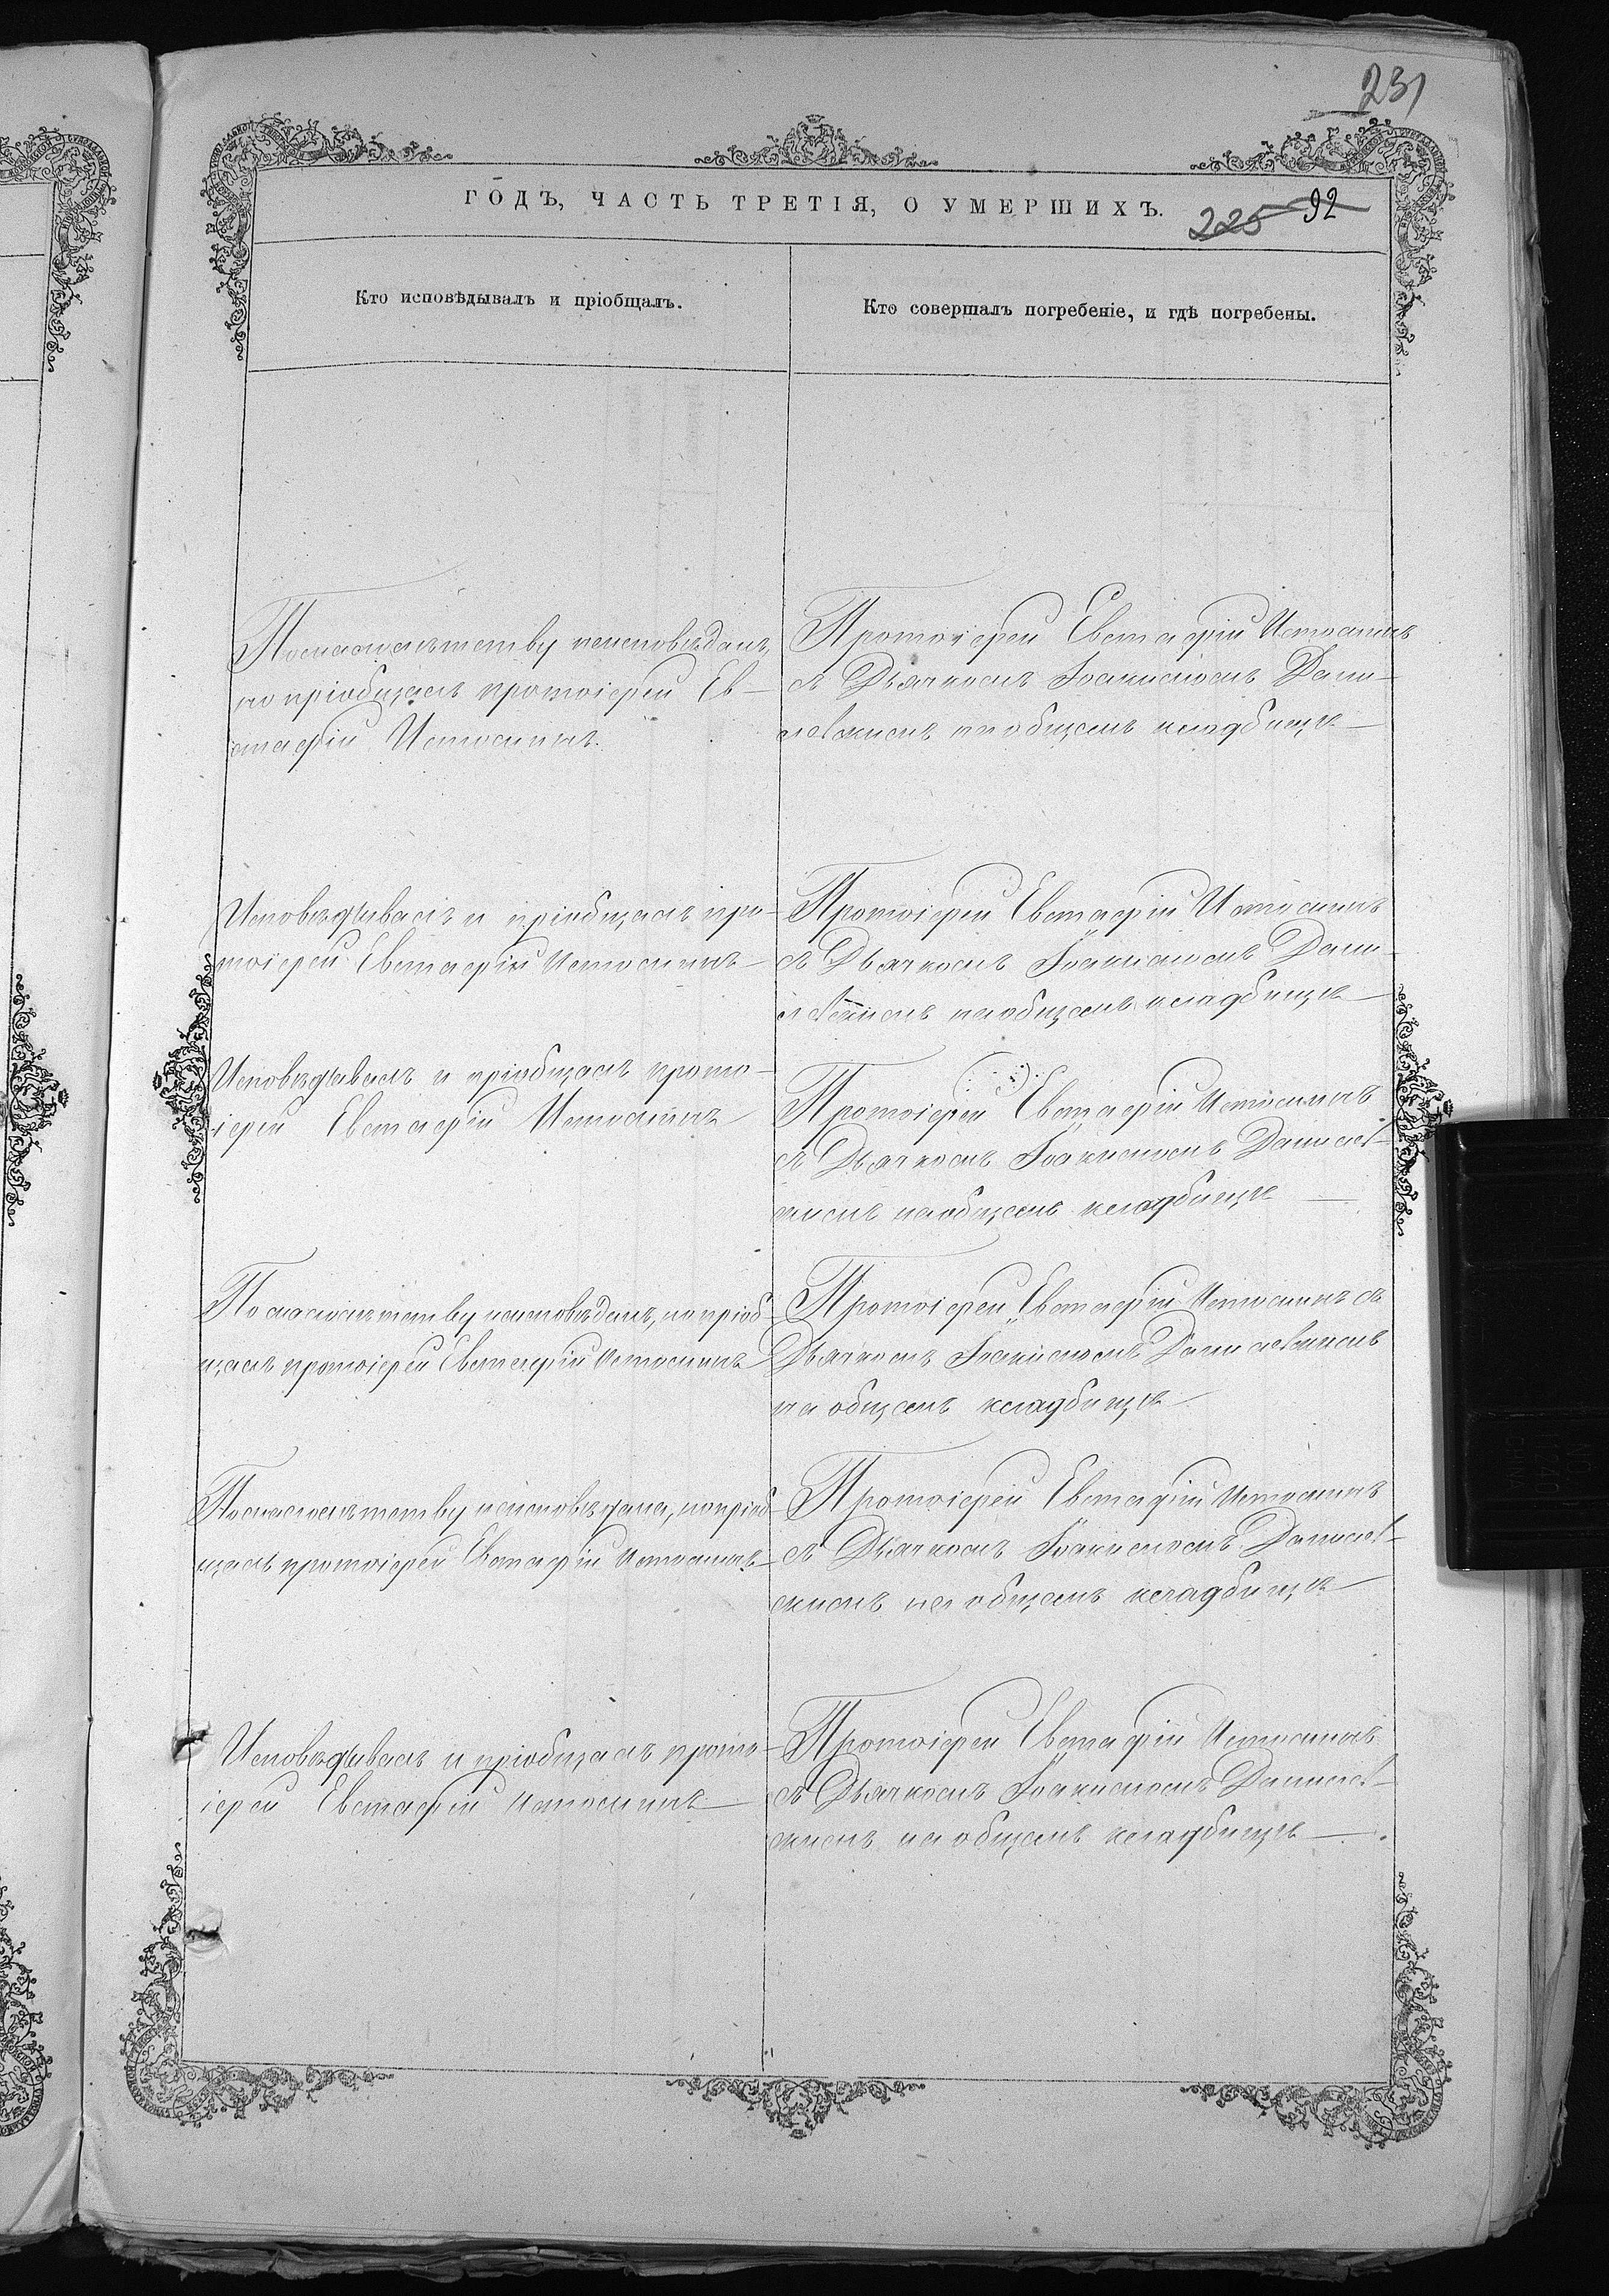 231
ГОДЪ, ЧАСТЬ ТРЕТІЯ, О УМЕРШИХЪ.
225 92
Кто исповѣдывалъ и пріобщалъ.
Кто совершалъ погребеніе, и гдѣ погребены.
По малолѣтству неисповѣданъ,
но пріобщалъ протоіерей Ев-
стафій Истоминъ.
Протоіерей Евстафій Истоминъ
съ Дьячкомъ Іоакимомъ Дани-
на общемъ кладбищѣ
Исповѣдывалъ и пріобщалъ про-
тоіерей Евстафій Истоминъ
Протоіерей Евстафій Истоминъ
съ Дьячкомъ Іоакимомъ Дани-
на общемъ кладбищѣ
Исповѣдывалъ и пріобщалъ прото-
іерей Евстафій Истоминъ
Протоіерей Евстафій Истоминъ
съ Дьячкомъ Іоакимомъ
на общемъ кладбищѣ
По малолѣтству неисповѣданъ, но пріоб-
щалъ протоіерей Евстафій Истоминъ
Протоіерей Евстафій Истоминъ съ
Дьячкомъ Іоакимомъ
на общемъ кладбищѣ
По малолѣтству неисповѣдана, но пріоб-
щалъ протоіерей Евстафій Истоминъ
Протоіерей Евстафій Истоминъ
съ Дьячкомъ Іоакимомъ
на общемъ кладбищѣ
Исповѣдывалъ и пріобщалъ прото-
іерей Евстафій Истоминъ
Протоіерей Евстафій Истоминъ
съ Дьячкомъ Іоакимомъ
на общемъ кладбищѣ